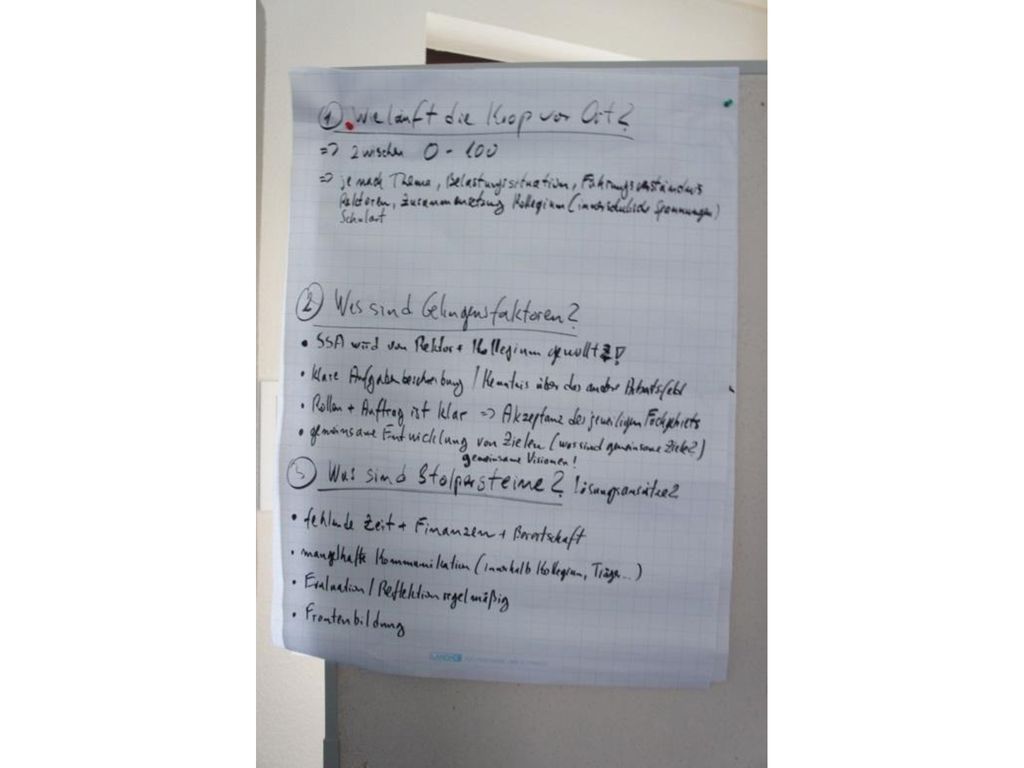 ① Wie läuft die Koop vor Ort?
=> zwischen 0 - 100
=> je nach Thema, Belastungssituation, Führungsverständnis
Rektoren, Zusammensetzung Kollegium (innerschulische Spannungen)
Schulart
② Was sind Gelingensfaktoren?
• SSA wird von Rektor + Kollegium gewollt!
• klare Aufgabenbeschreibung / Kenntnis über das andere Arbeitsfeld
• Rollen + Auftrag ist klar => Akzeptanz des jeweiligen Fachgebiets
• gemeinsame Entwicklung von Zielen (was sind gemeinsame Ziele?)
gemeinsame Visionen!
③ Was sind Stolpersteine? Lösungsansätze?
• fehlende Zeit + Finanzen + Bereitschaft
• mangelhafte Kommunikation (innerhalb Kollegium, Träger...)
• Evaluation / Reflektion regelmäßig
• Frontenbildung